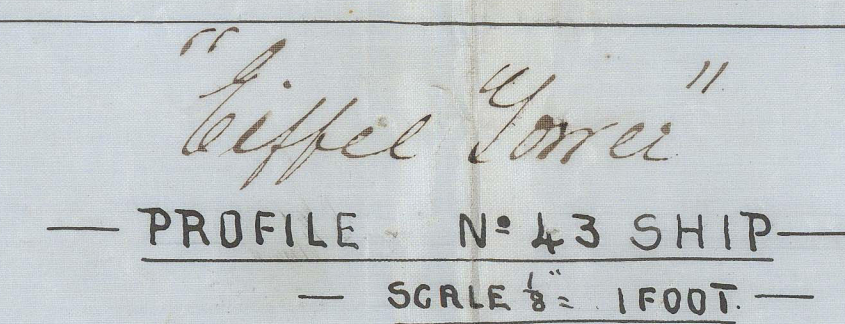 "Eiffel Tower"
PROFILE Nº 43 SHIP
SCALE 1/8" = 1 FOOT.